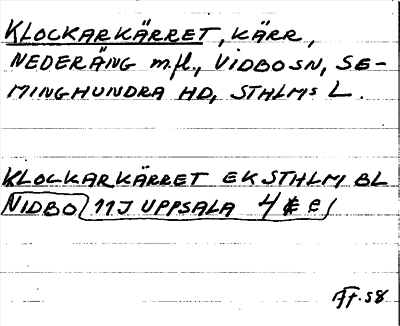 KLOCKARKÄRRET, KÄRR,
NEDERÄNG m.fl., VIDBO SN, SE-
MINGHUNDRA HD, STHLMS L.
KLOCKARKÄRRET EK STHLM BL
VIDBO 11J UPPSALA 4 e
58